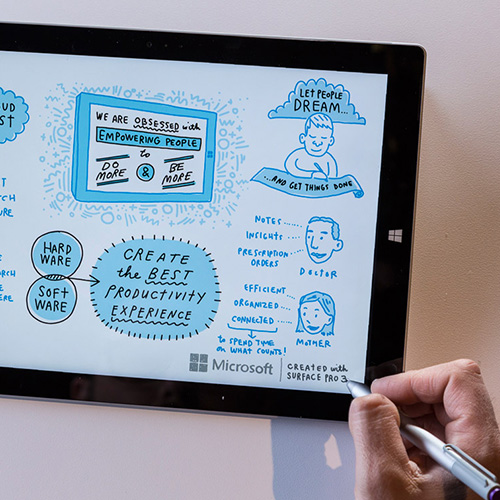 WE ARE OBSESSED with
EMPOWERING PEOPLE
to
DO MORE
&
BE MORE
LET PEOPLE
DREAM...
...AND GET THINGS DONE
HARD
WARE
SOFT
WARE
CREATE
the BEST
PRODUCTIVITY
EXPERIENCE
NOTES
INSIGHTS
PRESCRIPTION
ORDERS
DOCTOR
EFFICIENT
ORGANIZED
CONNECTED
to SPEND TIME
on WHAT COUNTS!
MOTHER
Microsoft
CREATED with
SURFACE PRO 3